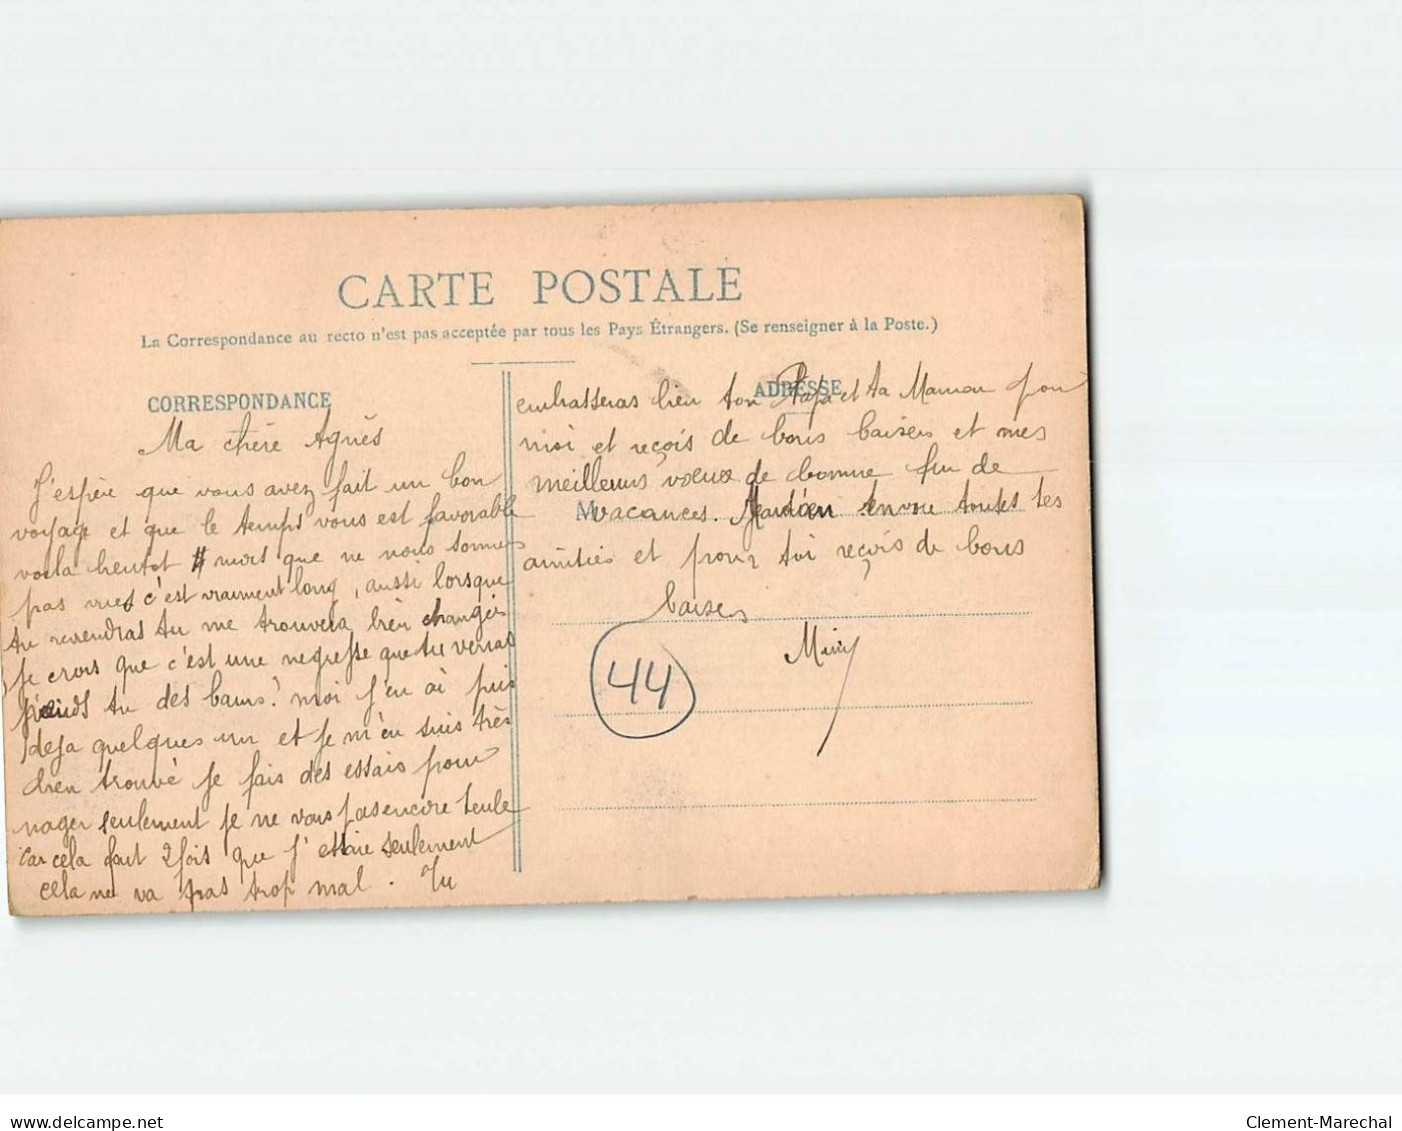 CARTE POSTALE
La Correspondance au recto n'est pas acceptée par tous les Pays Étrangers. (Se renseigner à la Poste.)
CORRESPONDANCE
Ma chère Agnès
J'espère que vous avez fait un bon
voyage et que le temps vous est favorable
voila bientot # mois que ne nous sommes
pas vues c'est vraiment long, aussi lorsque
tu reviendras tu me trouvera bien changée
je crois que c'est une negresse que tu verras
prends tu des bains? moi j'en ai pris
deja quelques un et je m'en suis très
bien trouvé je fais des essais pour
nager seulement je ne vais pas encore seule
car cela fait 2 fois que j'essaie seulement
cela ne va pas trop mal. Tu
ADRESSE
embrasseras bien ton Papa et ta Maman pour
moi et reçois de bons baisers et mes
meilleurs vœux de bonne fin de
M
vacances. envoie toutes ses
amitiés et pour toi reçois de bons
baisers
44
Clement-Marechal
delcampe.net